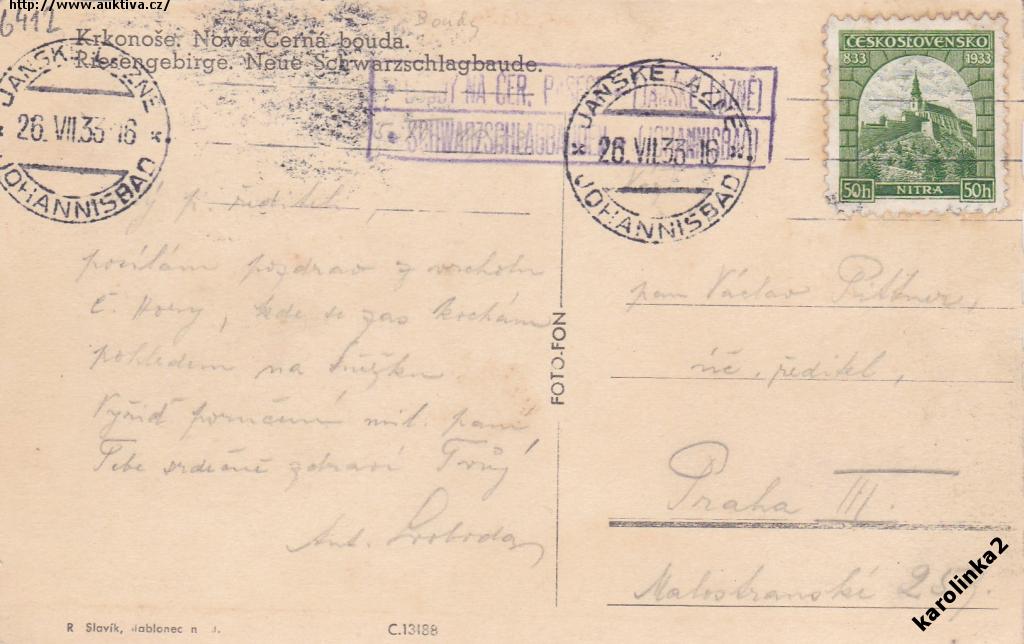 http://www.auktiva.cz/
6412
Boudy
Krkonoše. Nová Černá bouda.
Riesengebirge. Neue Schwarzschlagbaude.
JÁNSKÉ LÁZNĚ
26. VII. 33-16
JOHANNISBAD
BOUDY NA ČER. (JANSKÉ LÁZNĚ)
SCHWARZSCHLAGBAUDEN (JOHANNISBAD)
JÁNSKÉ LÁZNĚ
26. VII. 33-16
JOHANNISBAD
ČESKOSLOVENSKO
833 1933
50h NITRA 50h
p. řediteli,
posílám pozdrav z vrcholu
Č. Hory, kde se zas kochám
pohledem na Sněžku
Vyřiď poručení mil. paní
Tebe srdečně zdraví Tvůj
Ant. Svoboda
FOTO-FON
pan Václav Pittner,
úč. ředitel,
Praha III.
Malostranské
R Slavík, Jablonec n J.
C.13188
karolinka2